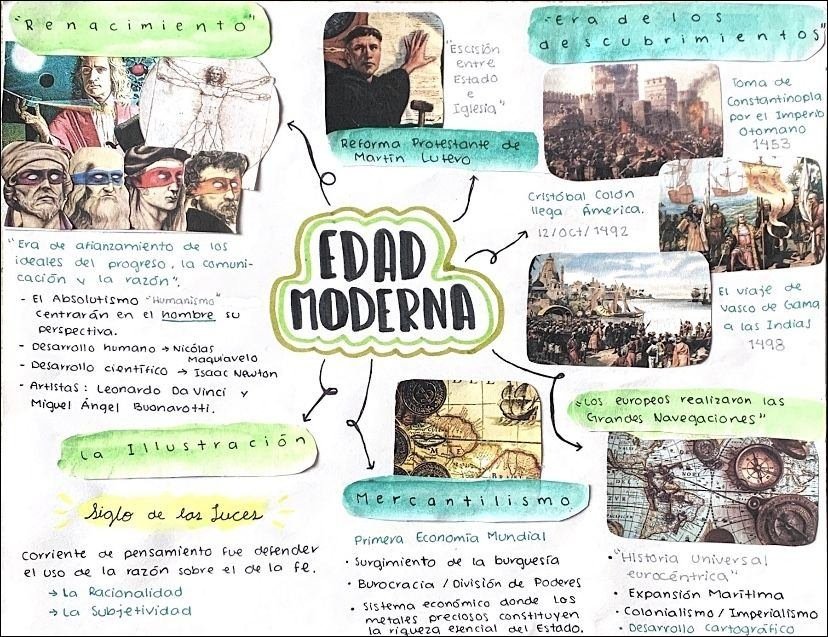 "Renacimiento"
"Era de afianzamiento de los
ideales del progreso, la comuni-
cación y la razón".
- El Absolutismo "Humanismo"
centrarán en el hombre su
perspectiva.
- Desarrollo humano → Nicólas
Maquiavelo
- Desarrollo científico → Isaac Newton
- Artistas: Leonardo Da Vinci y
Miguel Ángel Buonarotti.
"Escisión
entre
Estado
e
Iglesia"
Reforma Protestante de
Martín Lutero
"Era de los
descubrimientos"
Toma de
Constantinopla
por el Imperio
Otomano
1453
Cristóbal Colón
llega América.
12/Oct/1492
El viaje de
Vasco de Gama
a las Indias
1498
EDAD
MODERNA
La Illustración
Siglo de las Luces
Corriente de pensamiento fue defender
el uso de la razón sobre el de la fe.
→ La Racionalidad
→ La Subjetividad
Mercantilismo
Primera Economía Mundial
• Surgimiento de la burguesía
• Burocracia / División de Poderes
• Sistema económico donde los
metales preciosos constituyen
la riqueza esencial del Estado.
"Los europeos realizaron las
Grandes Navegaciones"
• "Historia universal
eurocéntrica"
• Expansión Marítima
• Colonialismo / Imperialismo
• Desarrollo Cartográfico